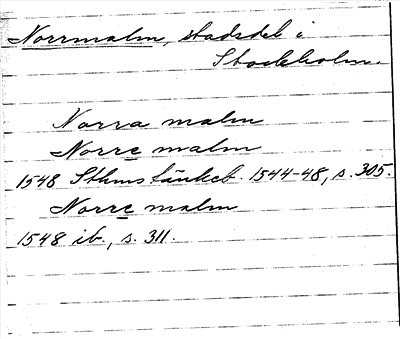 Norrmalm, stadsdel i
Stockholm.
Norra malm
Norre malm
1548 Sthms tänkeb. 1544-48, s. 305.
Norre malm
1548 ib., s. 311.